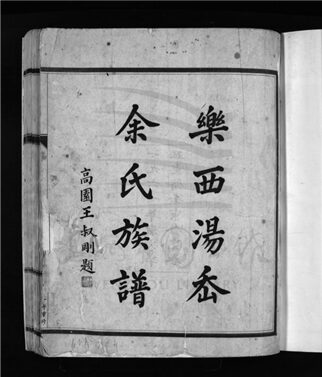 樂西湯岙
余氏族譜
高園王叔剛題